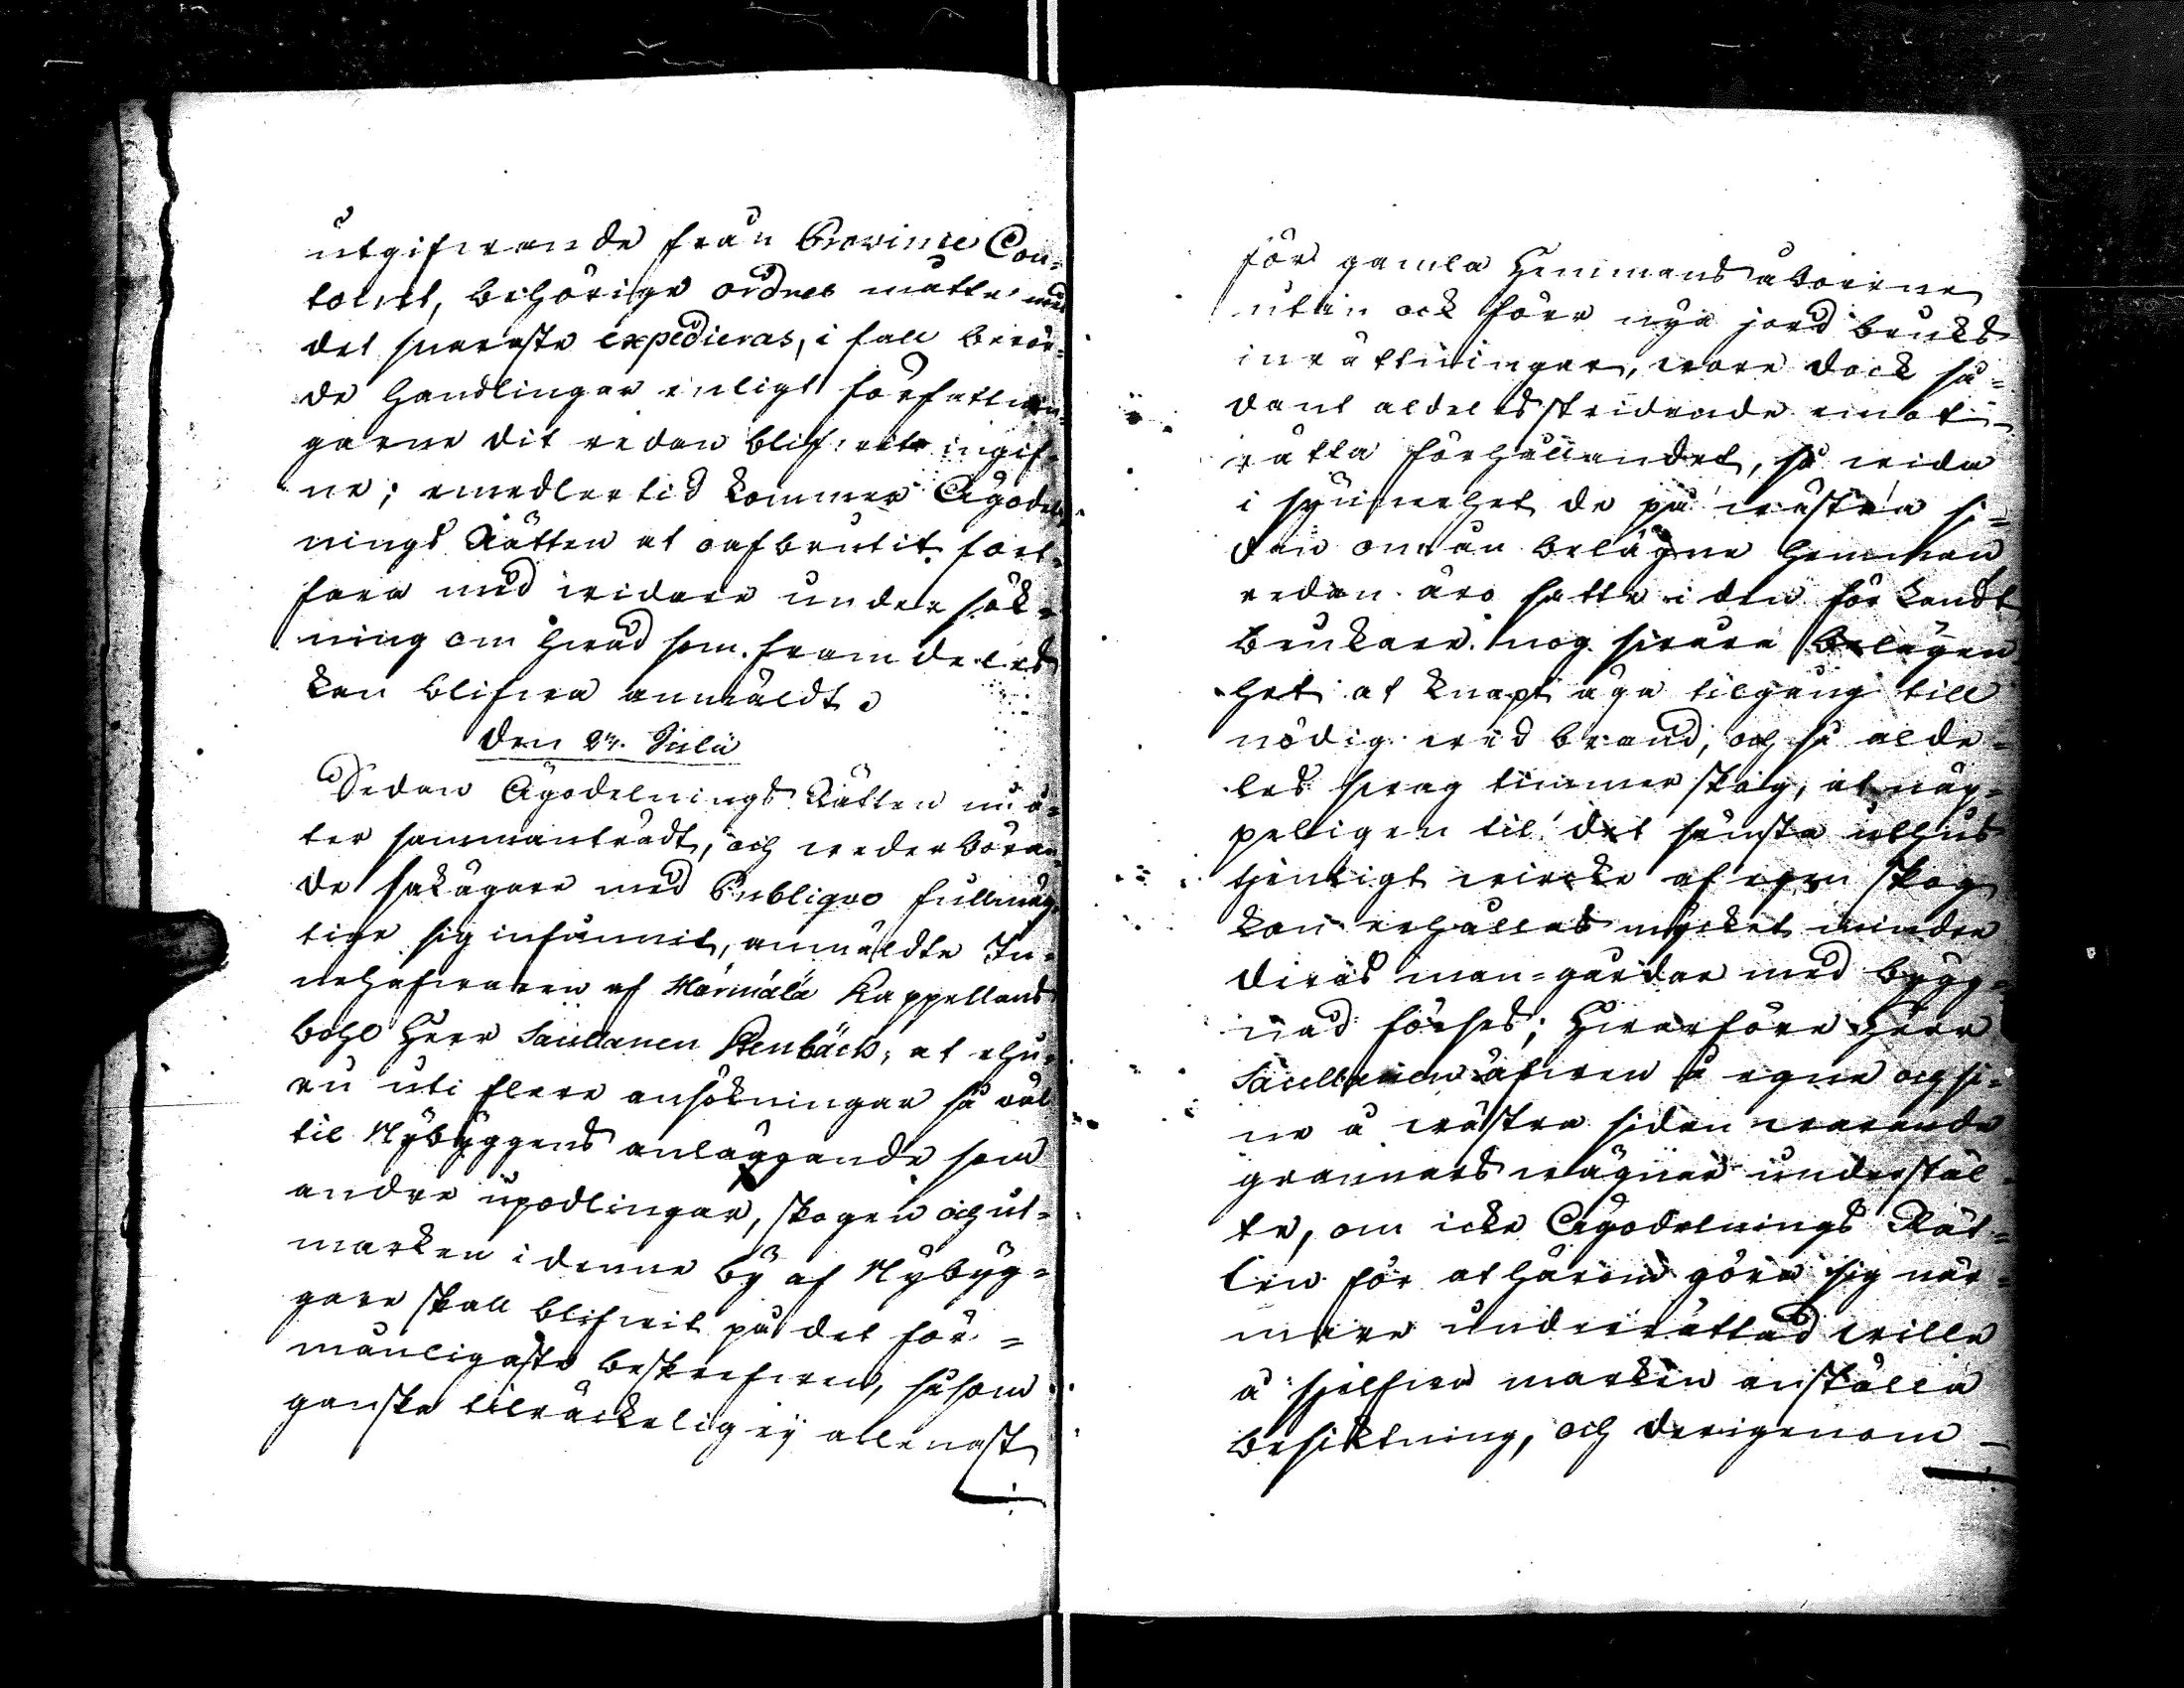 utgifwande från Province Con-
toiret, behörige ordres måtte med
det snaraste expedieras, i fall berör-
de Handlingar enligt författnin-
garne dit redan blifwit ingif-
ne; emedlertid kommer Ägodel-
nings Rätten at oafbrutit fort-
fara med widare undersök-
ning om hwad som framdeles
kan blifwa anmäldt.
Den 27. Julii
Sedan Ägodelnings Rätten nu å-
ter sammanträdt, och wederböran-
de sakägare med Publiquo fullmäg-
tige sig infunnit, anmäldte In-
nehafwaren af Harmala Kappellans
bohl Herr Sacellanen Stenbäck, at ehu-
ru uti flere ansökningar så wäl
til Nybyggens anläggande som
andre upodlingar, skogen och ut-
marken i denne by af Nybyg-
gare skall blifwit på det för-
månligaste beskrefwen, såsom
ganska tilräckelig ej allenast
för gamla Hemmans åboerne
utan ock förr nya jord bruks
inrättningar, wore dock så-
dant aldeles stridande emot
rätta förhållandet, så wida
i synnerhet de på wästra si-
dan om ån belägne hemman
redan äro satte i den för Landt
brukare nog swåra belägen
het at knapt äga tilgång till
nödig wed brand, och så alde-
les swag timmer skog, at näp-
peligen til det sämsta uthus
tjenligt wircke af egen skog
kan erhållas mycket mindre
deras man-gårdar med bygg-
nad förses; Hwarföre Herr
Sacellanen äfwen å egne och si-
ne å wästra sidan warande
grannars wägnar understäl-
te, om icke Ägodelnings Rät-
ten för at härom göra sig när-
mare underrättad wille
å sjelfwa marken anställa
besiktning, och derigenom